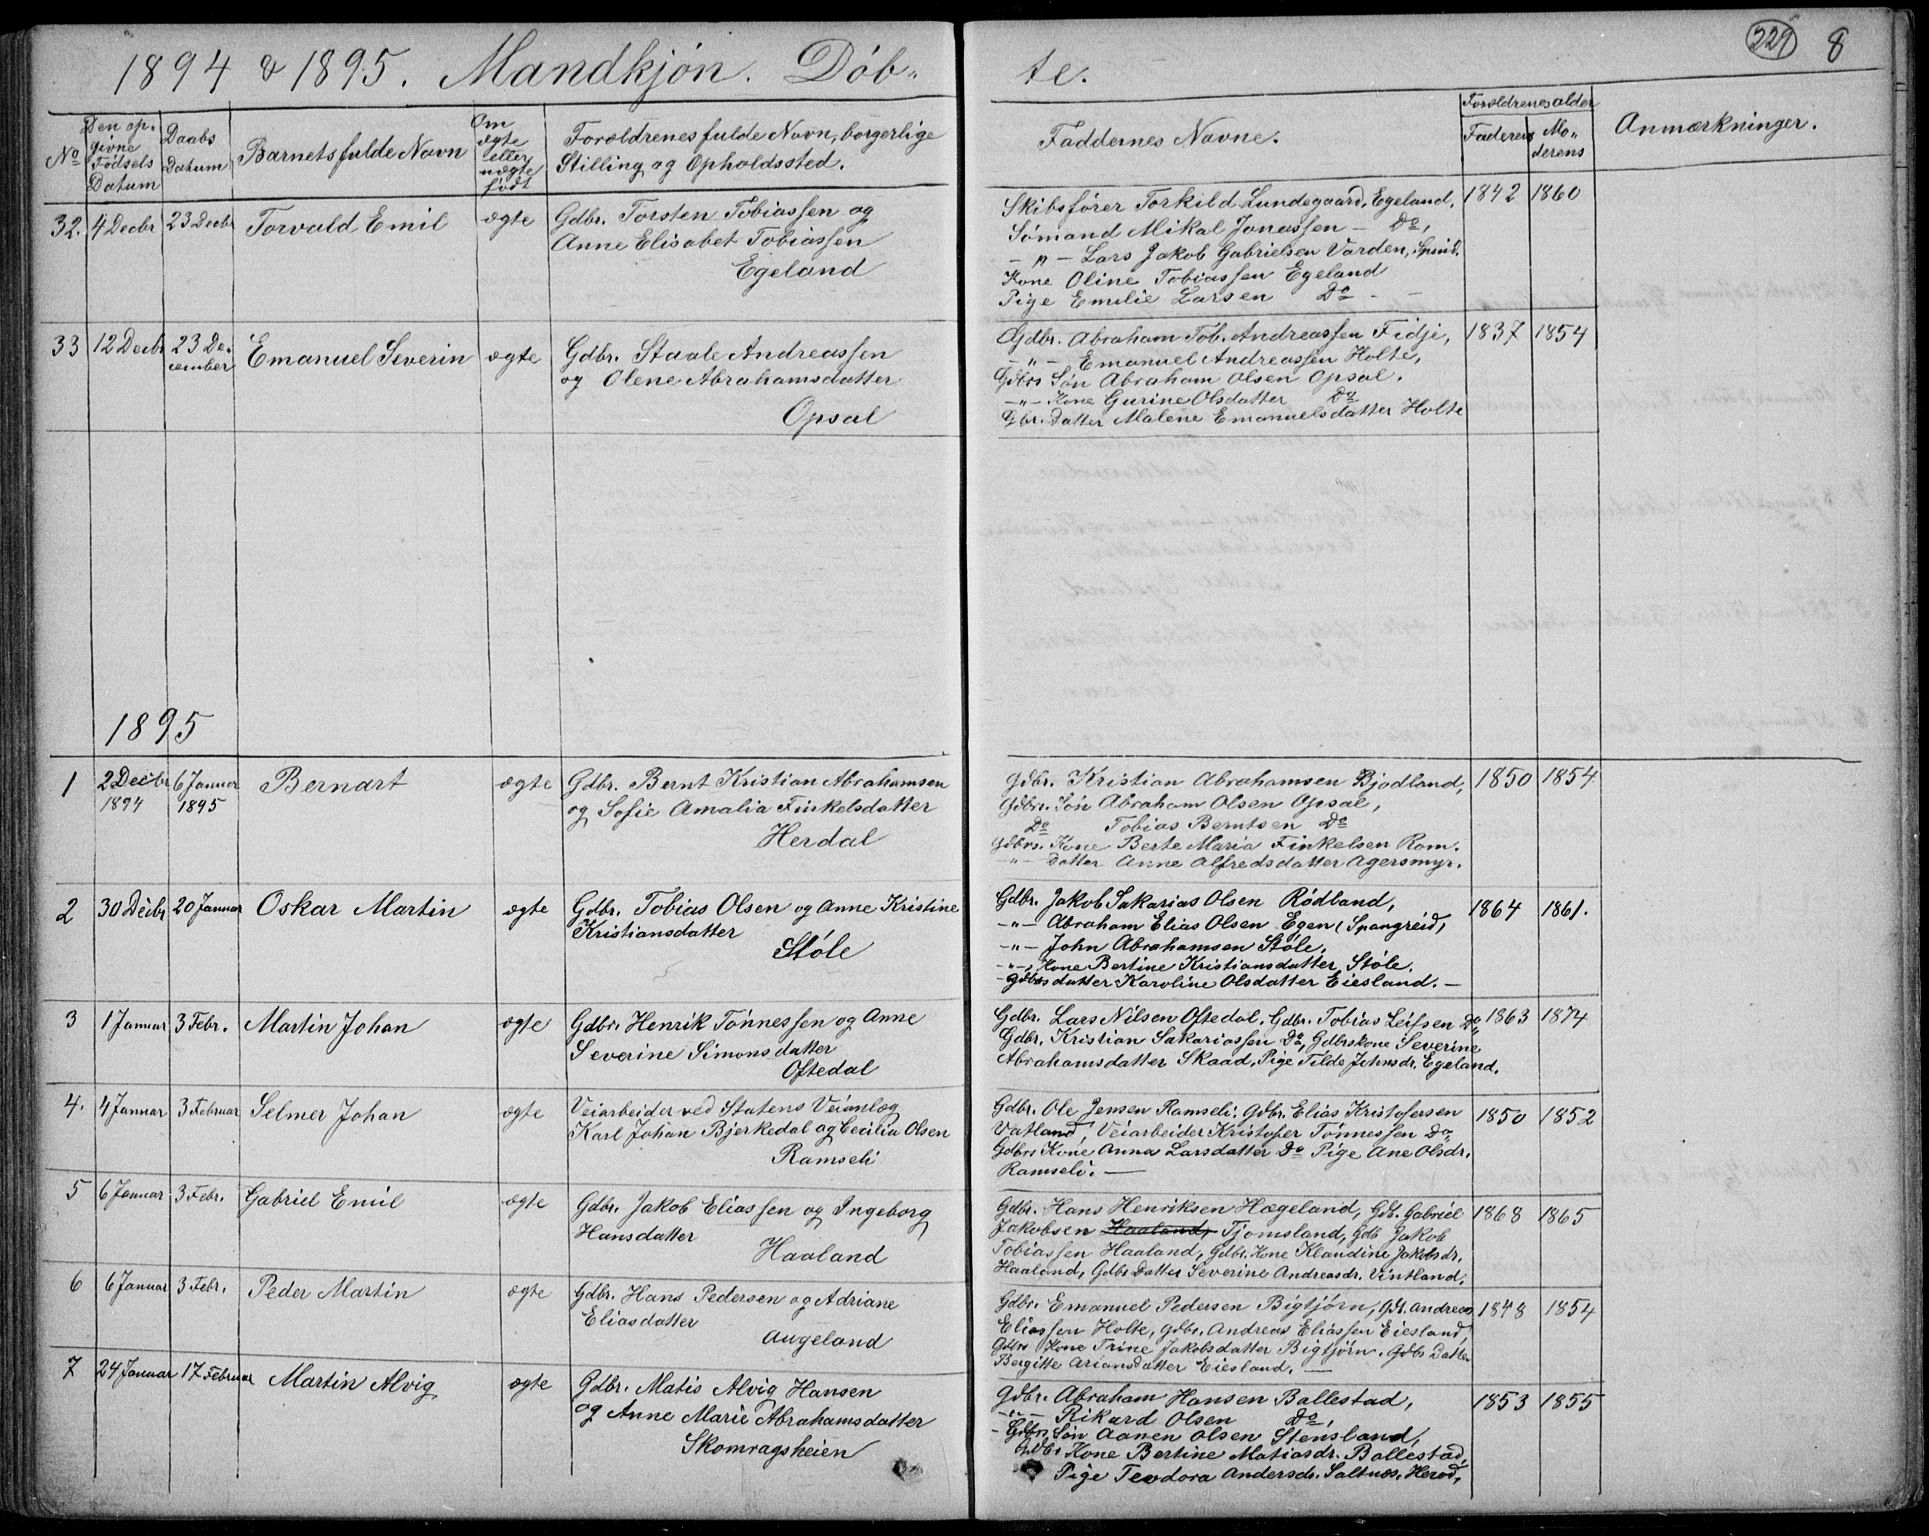 1894 & 1895. Mandkjøn. Døb„ te.
229 8
No
Den op„
givne
Fødsels
Datum
Daabs
Datum
Barnets fulde Navn
Om
ægte
eller
uægte
født
Forældrenes fulde Navn, borgerlige
Stilling og Opholdssted.
Faddernes Navne.
Forældrenes alder
Faderens
Mo„
derens
Anmærkninger.
32. 4 Decbr 23 Decbr Torvald Emil ægte
Gdbr. Torsten Tobiassen og
Anne Elisabet Tobiassen
Egeland
Skibsfører Torkild Lundegaard, Egeland, 1842 1860
Sømand Mikal Jonassen – Do,
– „ – Lars Jakob Gabrielsen Varden, Spind.
Kone Oline Tobiassen Egeland
Pige Emilie Larsen Do – –
33 12 Decbr 23 De„
cember
Emanuel Severin ægte
Gdbr. Staale Andreassen
og Olene Abrahamsdatter
Opsal
Gdbr. Abraham Tob. Andreassen Fidje, 1837 1854
– „ – Emanuel Andreassen Holte,
Gdbrs Søn Abraham Olsen Opsal.
– „ – Kone Gurine Olsdatter Do
Gbr. Datter Malene Emanuelsdatter Holte
1895
1 2 Decbr
1894
6 Januar
1895
Bernart ægte
Gdbr. Bernt Kristian Abrahamsen
og Sofie Amalia Finkelsdatter
Herdal
Gdbr. Kristian Abrahamsen Bjodland, 1850 1854
Gdbrs. Søn Abraham Olsen Opsal,
Do Tobias Berntsen Do
Gdbrs. Kone Berte Maria Finkelsen Rom.
– „ – Datter Anne Alfredsdatter Agersmyr.
2 30 Decbr 20 Januar Oskar Martin ægte
Gdbr. Tobias Olsen og Anne Kristine
Kristiansdatter
Støle
Gdbr. Jakob Sakarias Olsen Rødland, 1864 1861.
– „ – Abraham Elias Olsen Egen (Spangreid,
– „ – John Abrahamsen Støle,
– „ – Kone Bertine Kristiansdatter Støle.
– Gdbrs datter Karoline Olsdatter Eiesland. –
3 1 Januar 3 Febr. Martin Johan ægte
Gdbr. Henrik Tønnessen og Anne
Severine Simonsdatter
Oftedal
Gdbr. Lars Nilsen Oftedal, Gdbr. Tobias Leifsen Do 1863 1874
Gdbr. Kristian Sakariassen Do, Gdbrskone Severine
Abrahamsdatter Skaad, Pige Tilde Johnsdr. Egeland.
4. 4 Januar 3 Februar Selmer Johan ægte
Veiarbeider ved Statens Veianlæg
Karl Johan Bjerkedal og Cecilia Olsen
Ramseli
Gdbr. Ole Jensen Ramseli, Gdbr. Elias Kristofersen 1850 1852
Vatland, Veiarbeider Kristofer Tønnessen Do
Gdbrs Kone Anna Larsdatter Do Pige Ane Olsdr.
Ramseli. –
5 6 Januar 3 Febr. Gabriel Emil ægte
Gdbr. Jakob Eliassen og Ingeborg
Hansdatter
Haaland
Gdbr. Hans Henriksen Hægeland, Gdb. Gabriel 1868 1865
Jakobsen Haaland, Tjomsland, Gdb Jakob
Tobiassen Haaland, Gdbr. Kone Klandine Jakobsdr.
Haaland, Gdbrs Datter Severine Andreasdr. Vintland.
6 6 Januar 3 Febr. Peder Martin ægte
Gdbr. Hans Pedersen og Adriane
Eliasdatter
Augeland
Gdbr. Emanuel Pedersen Bigtjørn, Gdb. Andreas 1848 1854
Eliassen Holte, Gdbr. Andreas Eliassen Eiesland,
Gdbrs Kone Trine Jakobsdatter Bigtjørn. Gdbs Datter
Bergitte Ariansdatter Eiesland. –
7 24 Januar 17 Februar Martin Alvig ægte
Gdbr. Matis Alvig Hansen
og Anne Marie Abrahamsdatter
Skomragsheien
Gdbr. Abraham Hansen Ballestad, 1853 1855
– „ – Rikard Olsen Do,
– Gdbrs Søn Aanen Olsen Stensland,
Gdbs Kone Bertine Matiasdr. Ballestad,
Pige Teodora Andersdr. Saltnes, Herød,